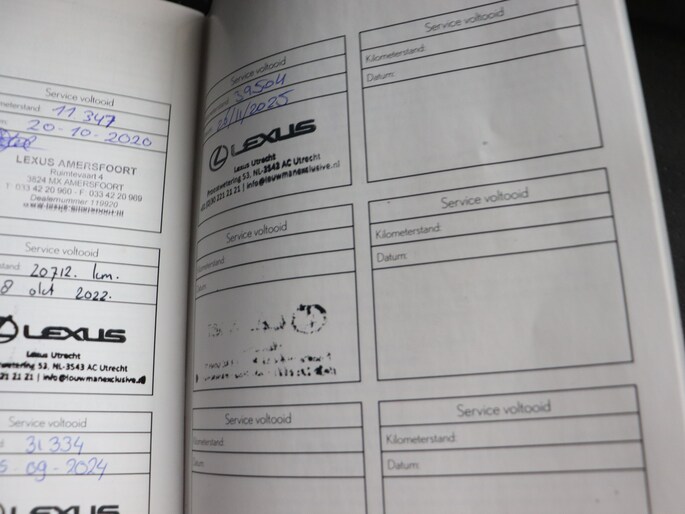 Service voltooid
11 347
20-10-2020
LEXUS AMERSFOORT
Ruimtevaart 4
3824 MX AMERSFOORT
T: 033 42 20 960 - F: 033 42 20 969
Dealernummer 119920
Service voltooid
20712. km.
8 okt 2022.
LEXUS
Lexus Utrecht
53, NL-3543 AC Utrecht
21 21 21 | info@louwmanexclusive.nl
Service voltooid
31 334
09-2024
LEXUS
Service voltooid
39504
11/2025
LEXUS
Lexus Utrecht
Proostwetering 53, NL-3543 AC Utrecht
221 21 21 | info@louwmanexclusive.nl
Service voltooid
Kilometerstand:
Datum:
Service voltooid
Kilometerstand:
Datum:
Service voltooid
Kilometerstand:
Datum:
Service voltooid
Kilometerstand:
Datum:
Service voltooid
Kilometerstand:
Datum: